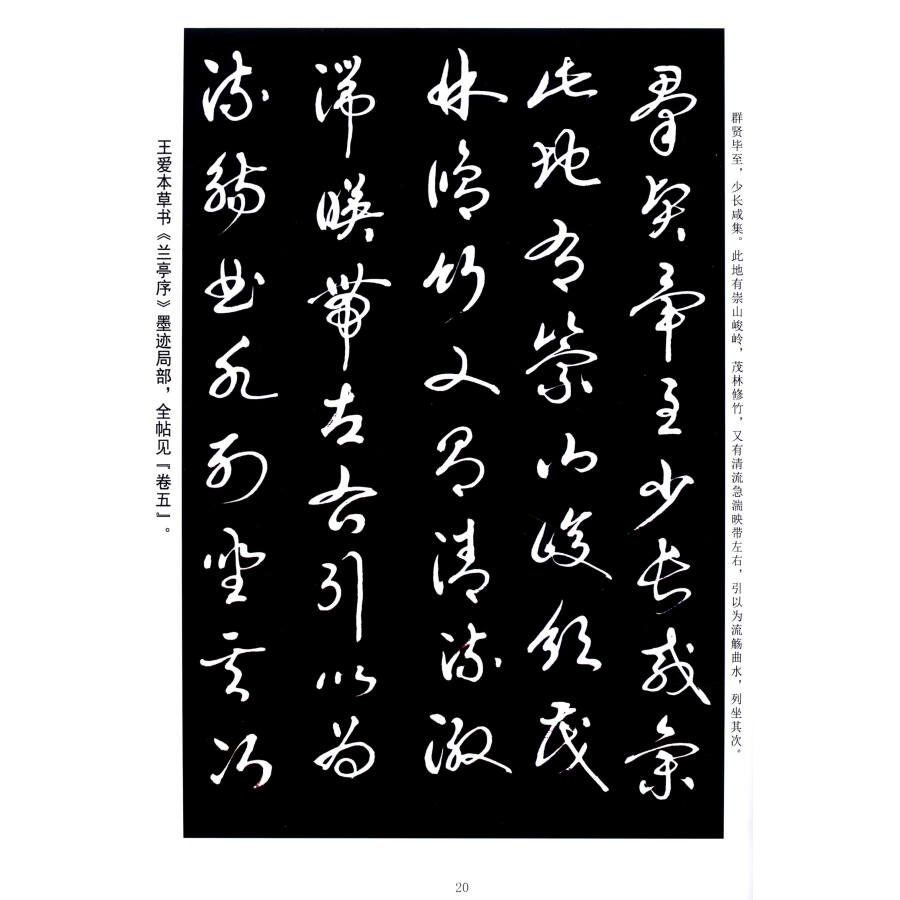 群贤毕至，少长咸集。此地有崇山峻岭，茂林修竹，又有清流急湍映带左右，引以为流觞曲水，列坐其次。
羣賢畢至少長咸集
此地有崇山峻領茂
林脩竹又有清流激
湍暎帶左右引以為
流觴曲水列坐其次
王爱本草书《兰亭序》墨迹局部，全帖见『卷五』。
20